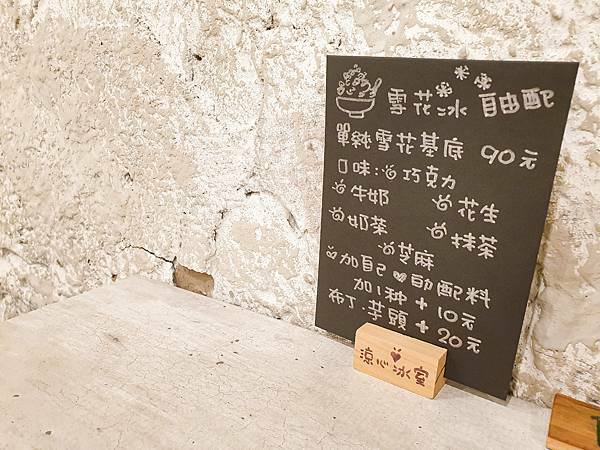 雪花冰 自由配
單純雪花基底 90元
口味:巧克力
牛奶 花生
奶茶 抹茶
芝麻
加自己 自助配料
加1种+10元
布丁.芋頭+20元
涼心冰室